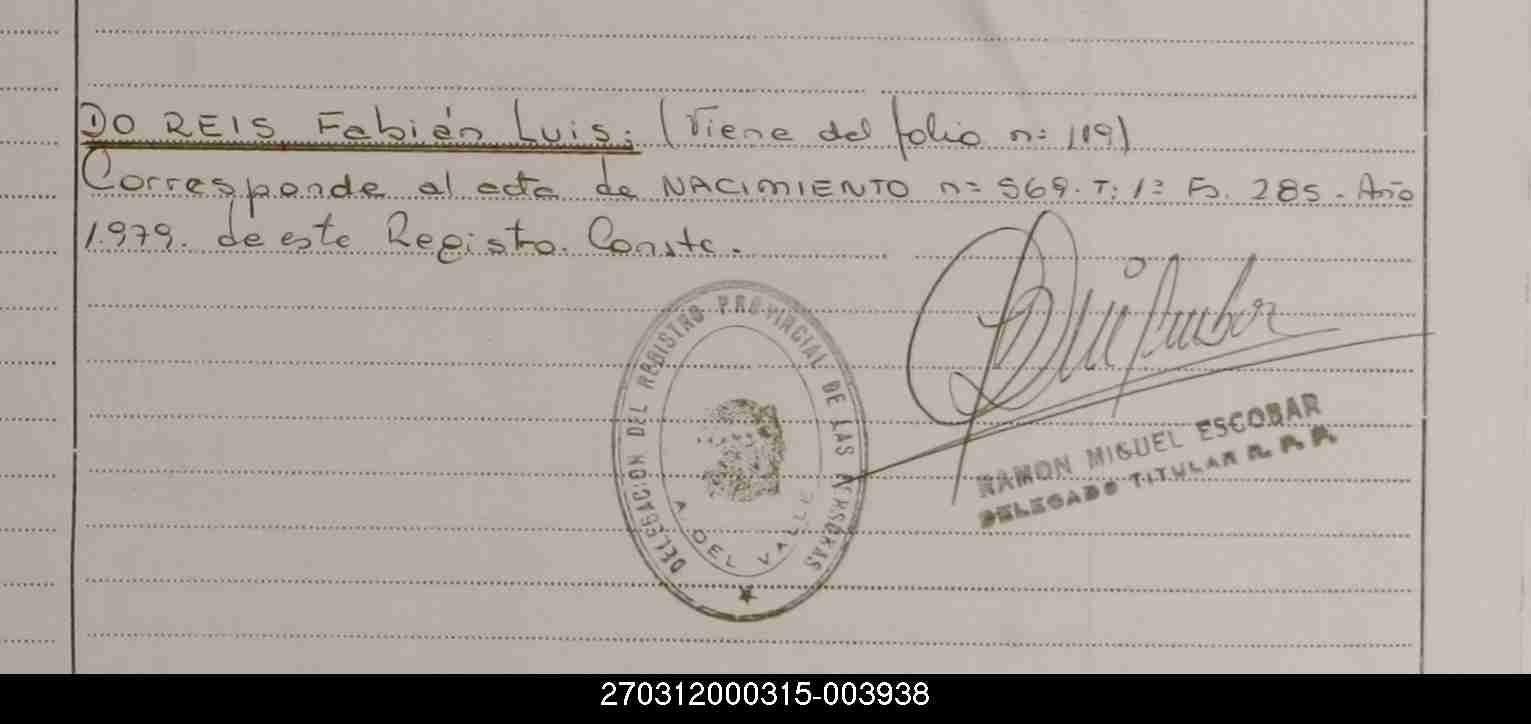 DO REIS Fabián Luis: (Viene del folio n= 119)
Corresponde al acta de NACIMIENTO n= 569. T: 1º Fs. 285 - Año
1.979. de este Registro. Conste.
DELEGACION DEL REGISTRO PROVINCIAL DE LAS PERSONAS
A. DEL VALLE
RAMON MIGUEL ESCOBAR
DELEGADO TITULAR R. P. P.
270312000315-003938